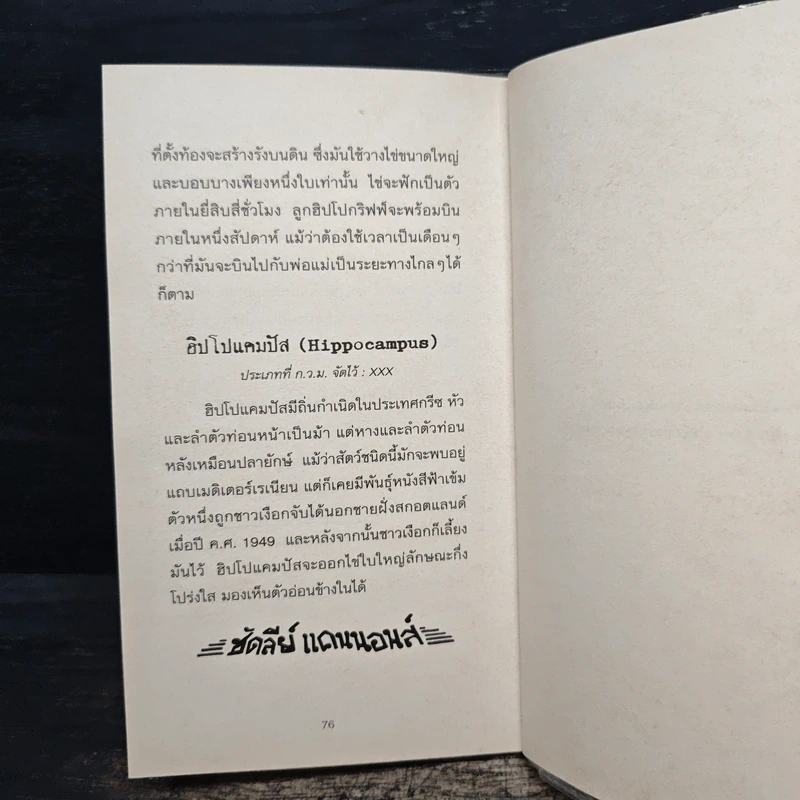 ที่ตั้งท้องจะสร้างรังบนดิน ซึ่งมันใช้วางไข่ขนาดใหญ่
และบอบบางเพียงหนึ่งใบเท่านั้น ไข่จะฟักเป็นตัว
ภายในยี่สิบสี่ชั่วโมง ลูกฮิปโปกริฟฟ์จะพร้อมบิน
ภายในหนึ่งสัปดาห์ แม้ว่าต้องใช้เวลาเป็นเดือนๆ
กว่าที่มันจะบินไปกับพ่อแม่เป็นระยะทางไกลๆได้
ก็ตาม
ฮิปโปแคมปัส (Hippocampus)
ประเภทที่ ก.ว.ม. จัดไว้ : XXX
ฮิปโปแคมปัสมีถิ่นกำเนิดในประเทศกรีซ หัว
และลำตัวท่อนหน้าเป็นม้า แต่หางและลำตัวท่อน
หลังเหมือนปลายักษ์ แม้ว่าสัตว์ชนิดนี้มักจะพบอยู่
แถบเมดิเตอร์เรเนียน แต่ก็เคยมีพันธุ์หนังสีฟ้าเข้ม
ตัวหนึ่งถูกชาวเงือกจับได้นอกชายฝั่งสกอตแลนด์
เมื่อปี ค.ศ. 1949 และหลังจากนั้นชาวเงือกก็เลี้ยง
มันไว้ ฮิปโปแคมปัสจะออกไข่ใบใหญ่ลักษณะกึ่ง
โปร่งใส มองเห็นตัวอ่อนข้างในได้
ชัดลีย์ แคนนอนส์
76